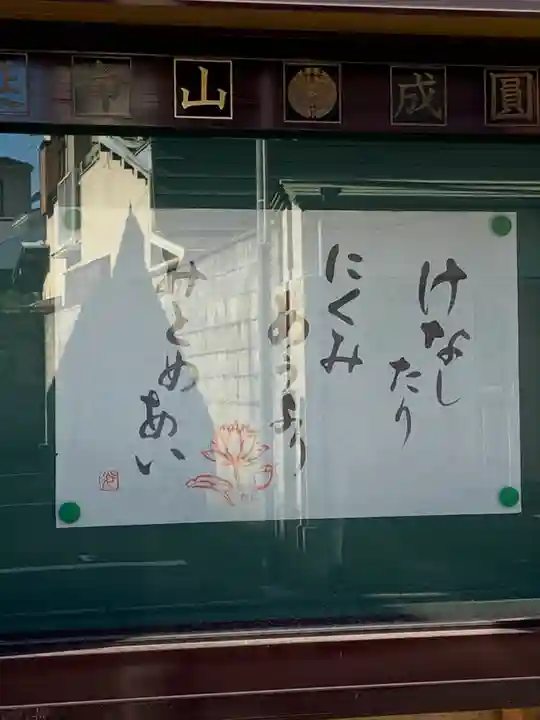 圓成
山
けなし
たり
にくみ
あうより
みとめあい